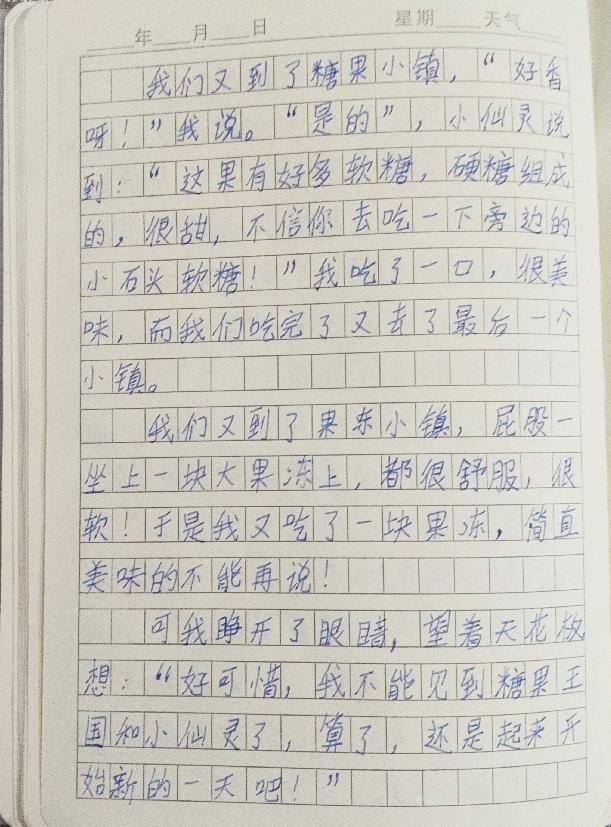 年 月 日 星期 天气
我们又到了糖果小镇，“好香
呀！”我说。“是的”，小仙灵说
到：“这果有好多软糖，硬糖组成
的，很甜，不信你去吃一下旁边的
小石头软糖！”我吃了一口，很美
味，而我们吃完了又去了最后一个
小镇。
我们又到了果东小镇，屁股一
坐上一块大果冻上，都很舒服，很
软！于是我又吃了一块果冻，简直
美味的不能再说！
可我睁开了眼睛，望着天花板
想：“好可惜，我不能见到糖果王
国和小仙灵了，算了，还是起来开
始新的一天吧！”